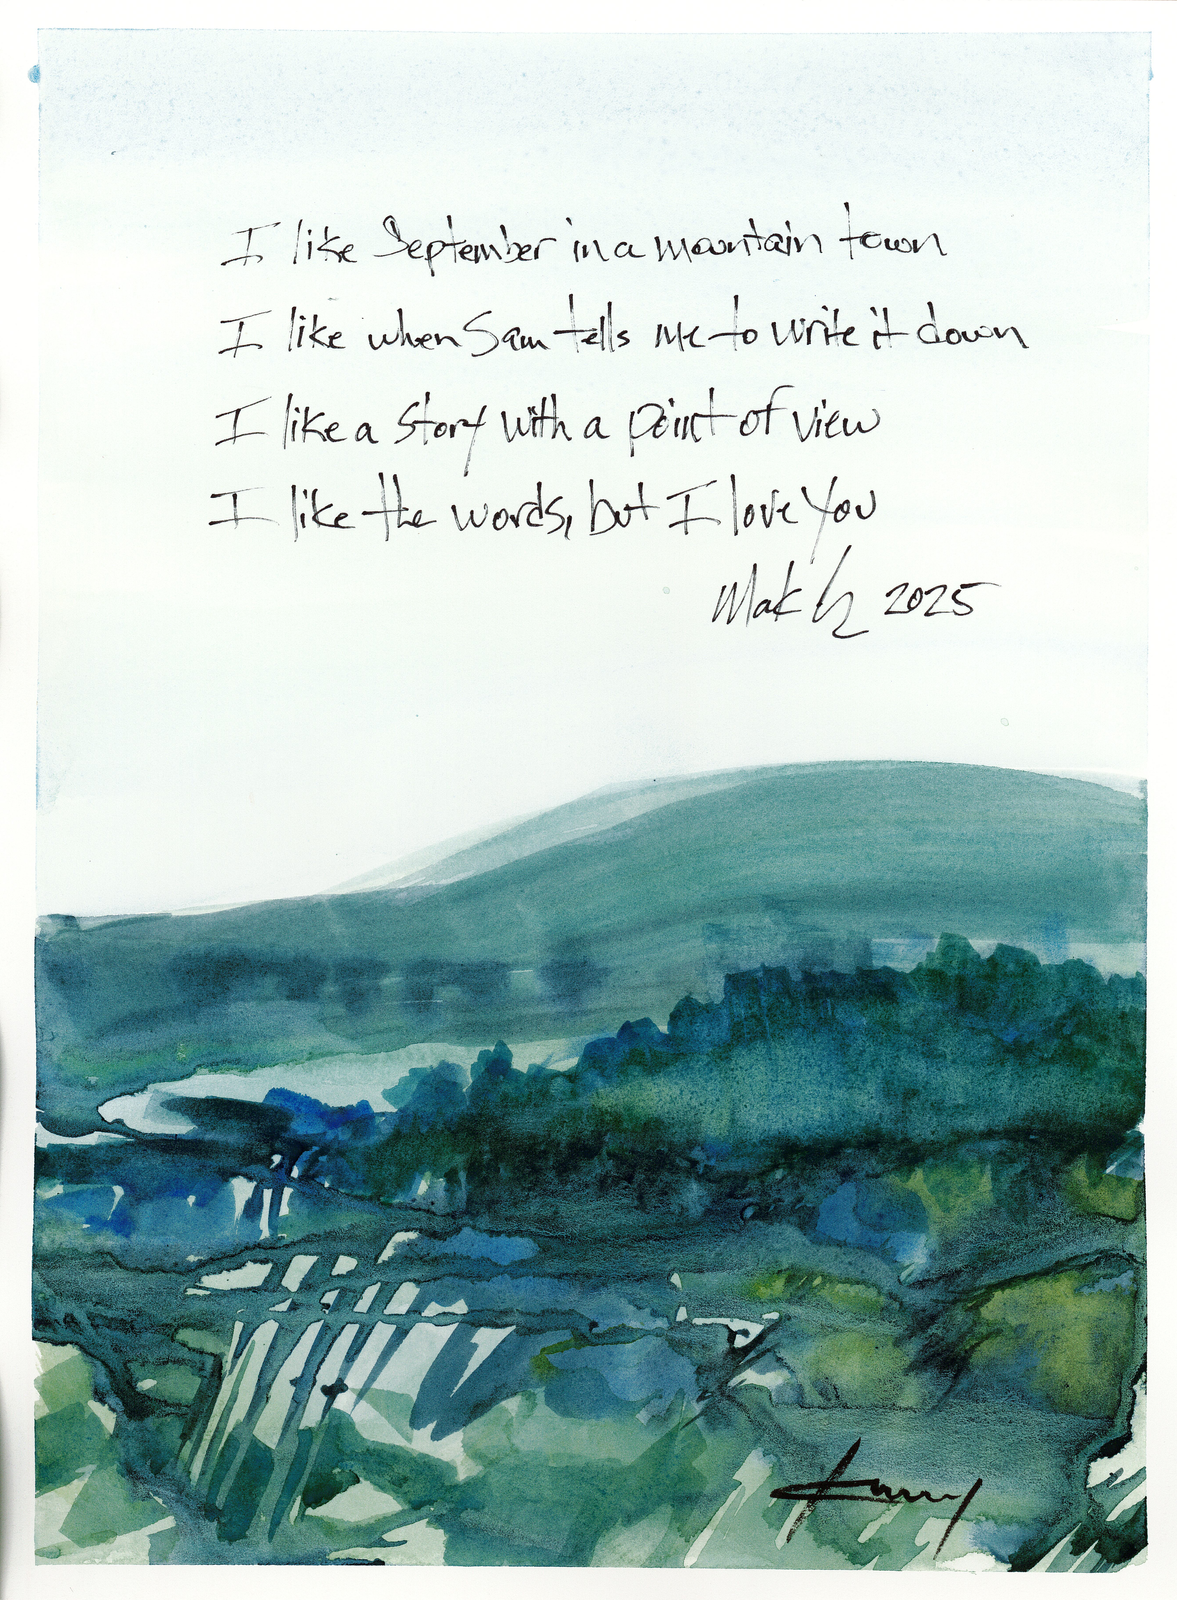 I like September in a mountain town
I like when Sam tells me to write it down
I like a story with a point of view
I like the words, but I love you
2025